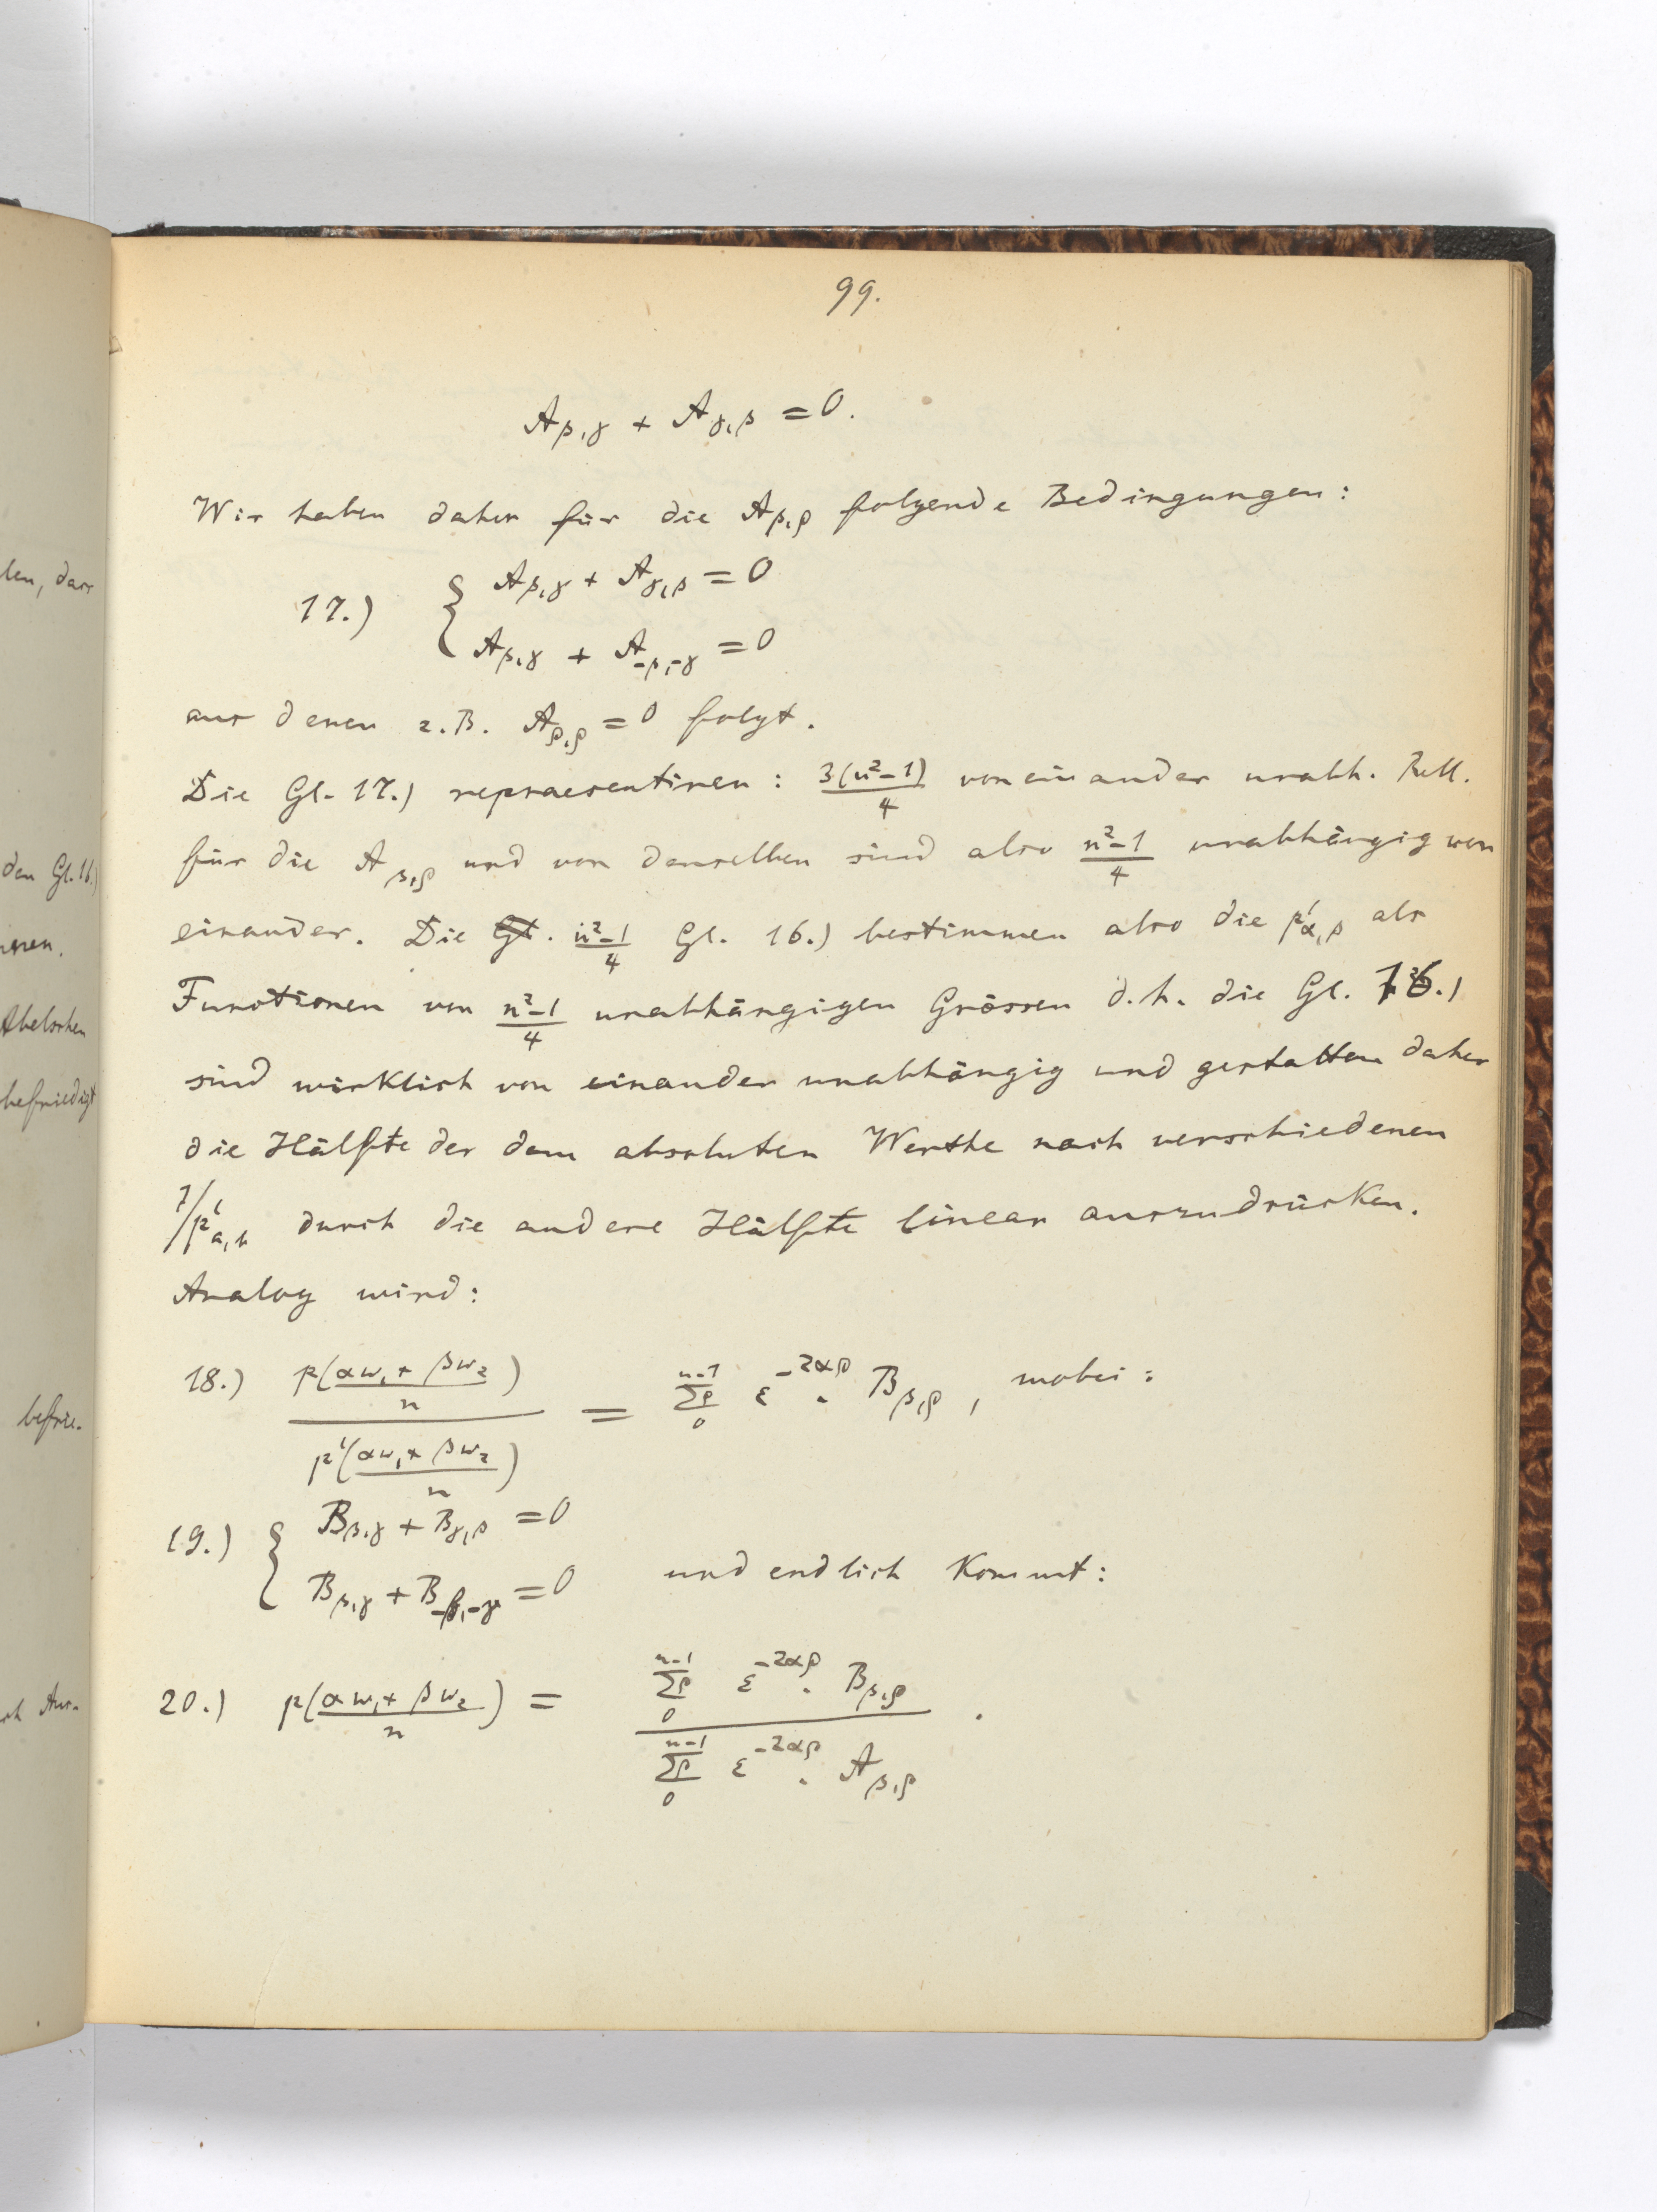 99.
A_{β,γ} + A_{γ,β} = 0.
Wir haben daher für die A_{β,ρ} folgende Bedingungen:
17.) { A_{β,γ} + A_{γ,β} = 0
A_{β,γ} + A_{-β,-γ} = 0
aus denen z.B. A_{ρ,ρ} = 0 folgt.
Die Gl. 17.) repraesentiren: 3(n²-1)/4 von einander unabh. Rell.
für die A_{β,ρ} und von denselben sind also n²-1/4 unabhängig von
einander. Die Gl. n²-1/4 Gl. 16.) bestimmen also die p'_{α,β} als
Functionen von n²-1/4 unabhängigen Grössen d.h. die Gl. 16.)
sind wirklich von einander unabhängig und gestatten daher
die Hälfte der dem absoluten Werthe nach verschiedenen
1/p'_{a,b} durch die andere Hälfte linear auszudrücken.
Analog wird:
18.) p(αω₁+βω₂/n) / p'(αω₁+βω₂/n) = Σρ_0^{n-1} ε^{-2αρ} . B_{β,ρ}, wobei:
19.) { B_{β,γ} + B_{γ,β} = 0
B_{β,γ} + B_{-β,-γ} = 0 und endlich kommt:
20.) p(αω₁+βω₂/n) = Σρ_0^{n-1} ε^{-2αρ} . B_{β,ρ} / Σρ_0^{n-1} ε^{-2αρ} . A_{β,ρ} .
len, dass
den Gl. 16.)
Abelschen
befriedigt
befrie-